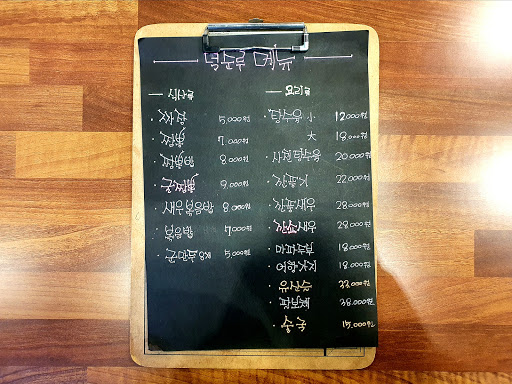 메뉴
식사류
짜장 5,000원
짬뽕 7,000원
짬뽕밥 8,000원
굴짬뽕 9,000원
새우볶음밥 8,000원
볶음밥 7,000원
군만두 K8 5,000원
요리류
탕수육 小 12,000원
大 18,000원
사천탕수육 20,000원
깐풍기 22,000원
깐풍새우 28,000원
깐쇼새우 28,000원
마파두부 18,000원
어향가지 18,000원
유산슬 33,000원
팔보채 38,000원
술국 15,000원